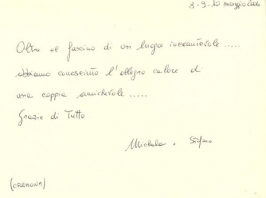 8-9-10 maggio
Oltre al fascino di un luogo incantevole .....
abbiamo conosciuto l'allegro calore di
una coppia amichevole .....
Grazie di Tutto
Michela e Stefano
(CREMONA)